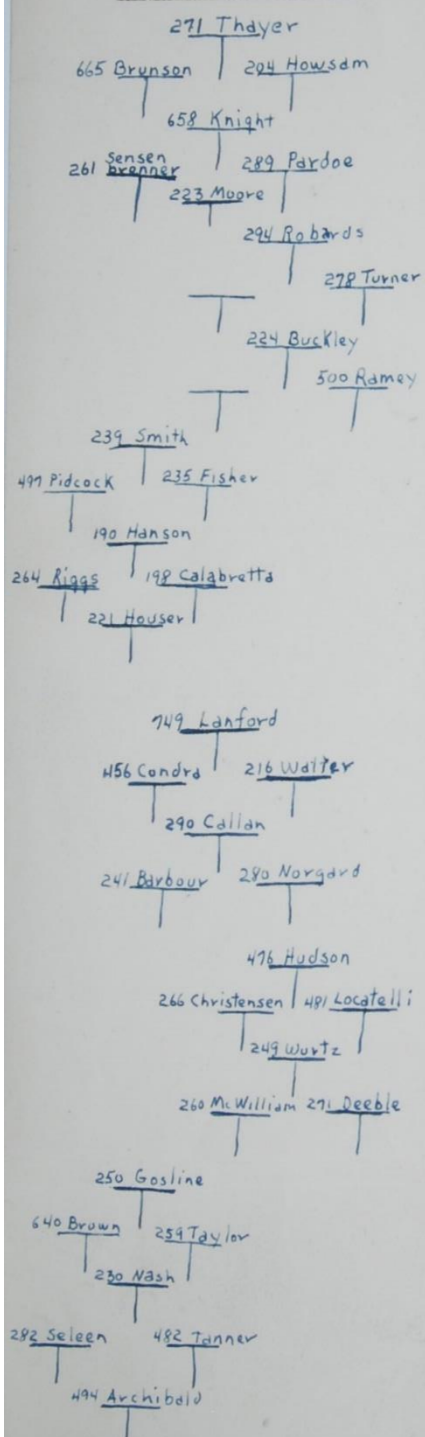 271 Thayer
665 Brunson 204 Howsam
658 Knight
261 Sensen
brenner 289 Pardoe
223 Moore
294 Robards
278 Turner
224 Buckley
500 Ramey
239 Smith
497 Pidcock 235 Fisher
190 Hanson
264 Riggs 198 Calabretta
221 Houser
749 Lanford
456 Condra 216 Walter
290 Callan
241 Barbour 280 Norgard
476 Hudson
266 Christensen 481 Locatelli
249 Wurtz
260 McWilliam 271 Deeble
250 Gosline
640 Brown 259 Taylor
230 Nash
282 Seleen 482 Tanner
494 Archibald